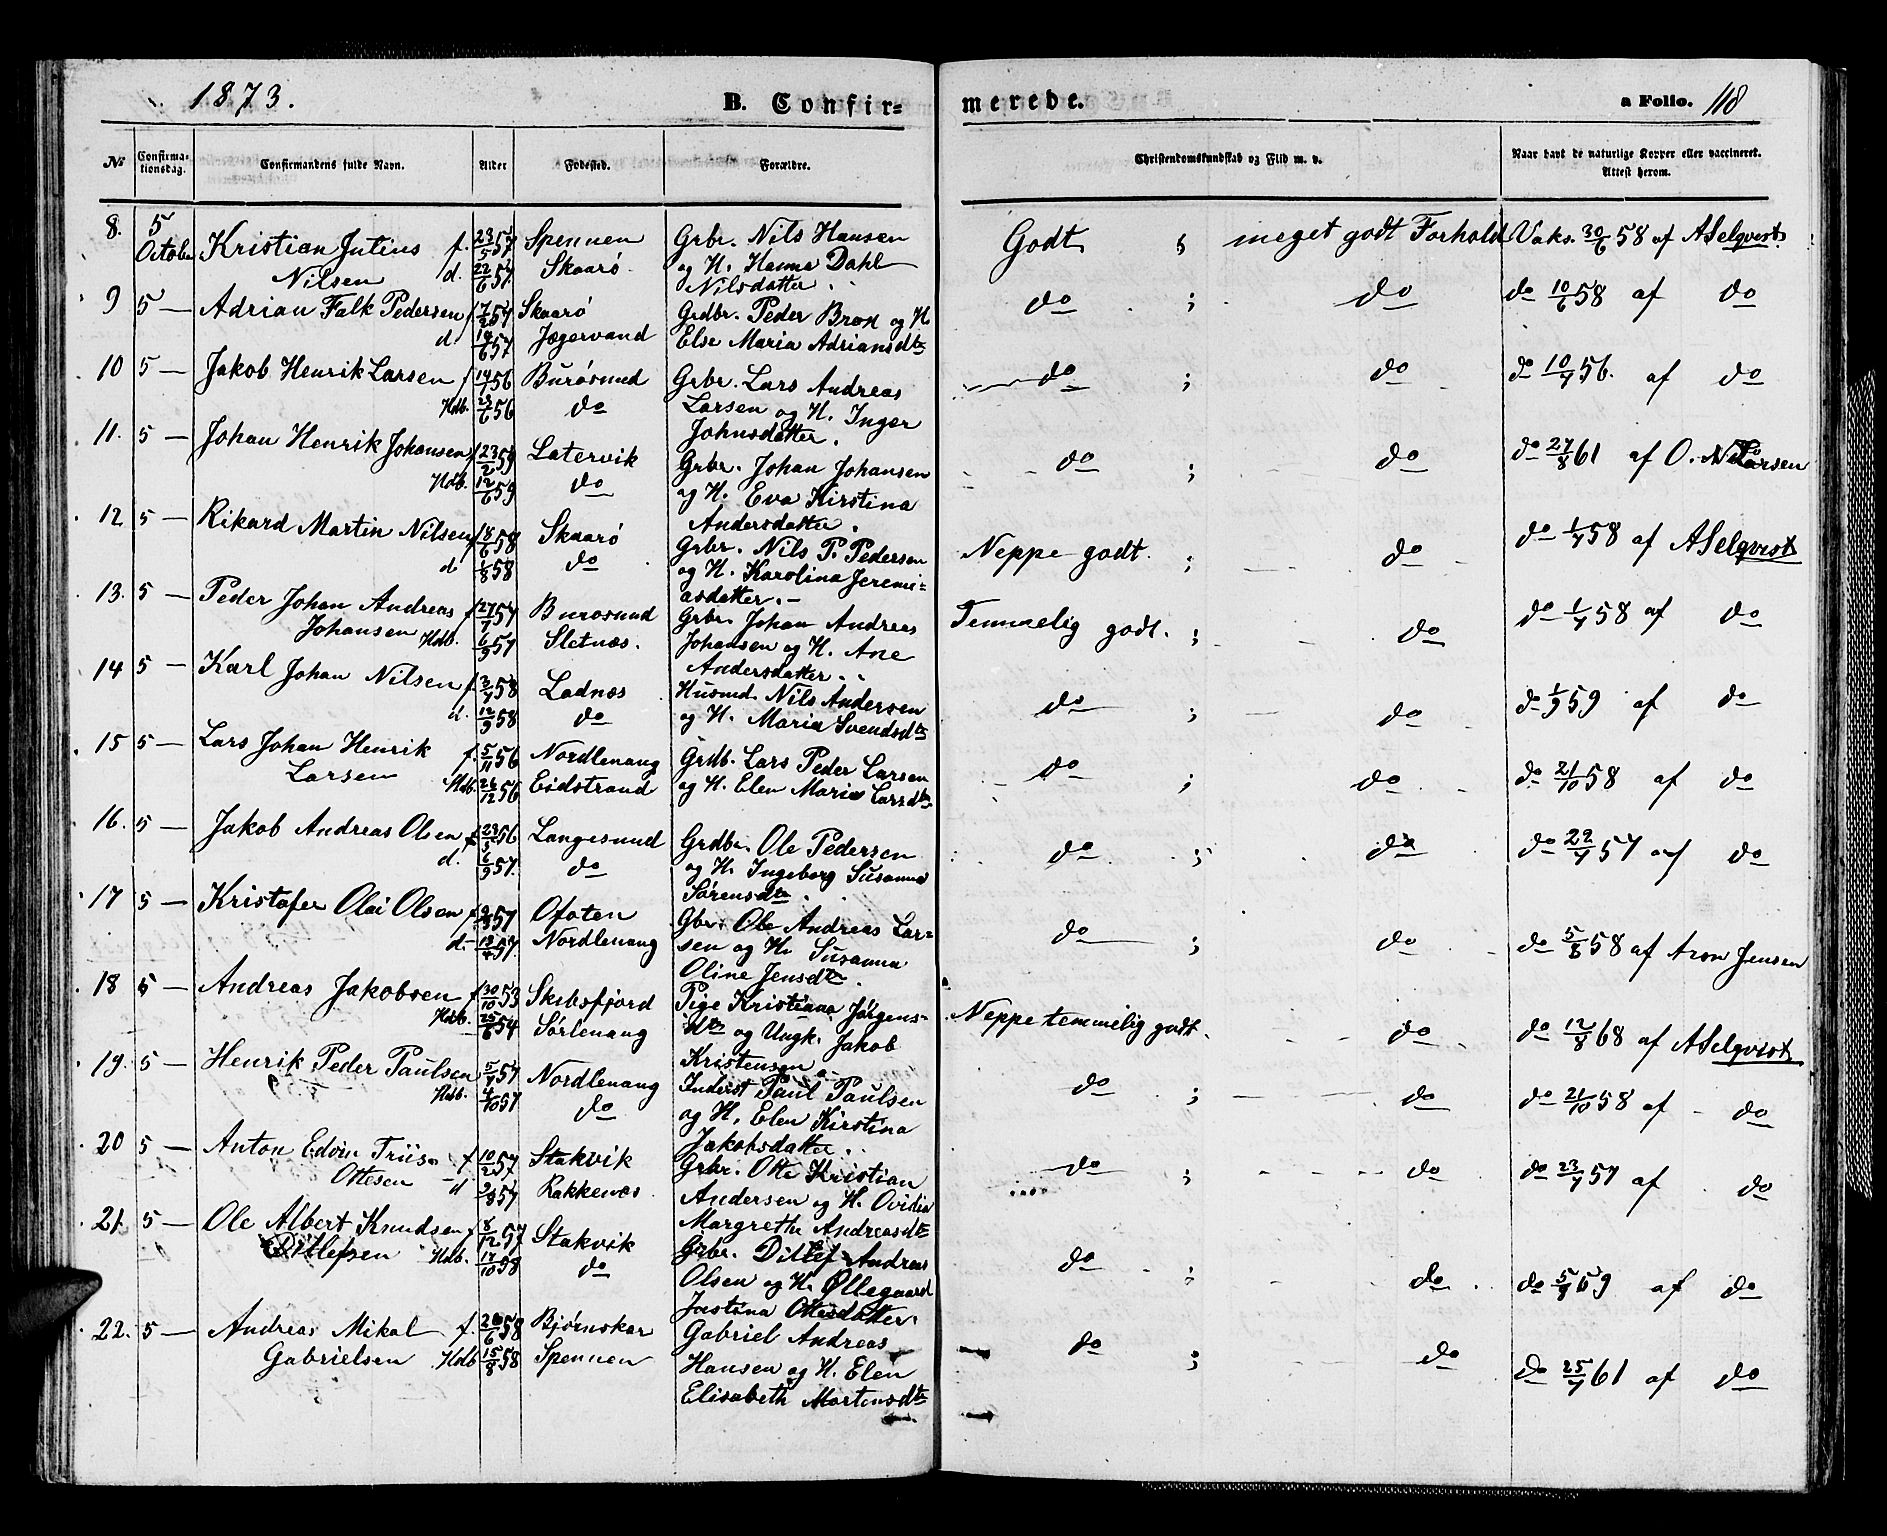 1873. B. Confir= merede. a Folio. 118
No Confirma-tionsdag. Confirmandens fulde Navn. Alder Fødested. Forældre. Christendomskundskab og Flid m. v. Naar havt de naturlige Kopper eller vaccineret. Attest herom.
8. 5 October Kristian Julius f. 23/5 57 Spennen Grbr. Nils Hansen Godt ; meget godt Forhold Vaks. 30/6 58 af A Selqvist
Nilsen d. 22/6 57 Skaarø og H. Hanna Dahl
Nilsdatter.
9 5 — Adrian Falk Pedersen f 57 Skaarø Grdbr. Peder Brox og H do ; do do 10/6 58 af do
d. 57 Jægervand Else Maria Adriansdtr
10 5 — Jakob Henrik Larsen f 56 Burøsund Grbr. Lars Andreas do ; do do 10/7 56. af do
Hdb. 56 do Larsen og H. Inger
Johnsdatter.
11. 5 — Johan Henrik Johansen f 23/2 59 Latervik Grbr. Johan Johansen do ; do do 27/8 61 af O. Larsen
Hdb. 12/6 59 do og H. Eva Kirstina
Andersdatter.
12 5 — Rikard Martin Nilsen f 18/6 58 Skaarø Grbr. Nils P. Pedersen Neppe godt. ; do do 1/7 58 af A Selqvist
d 1/8 58 do og H. Karolina Jeremi=
asdatter. –
13. 5 — Peder Johan Andreas f 27/7 57 Burøsund Grbr. Johan Andreas Temmelig godt. ; do do 1/7 58 af do
Johansen Hdb. 6/9 57 Sletnæs. Johansen og H. Ane
Andersdatter.
14 5 — Karl Johan Nilsen f. 3/7 58 Ladnæs Husmd. Nils Andersen do ; do do 1/9 59 af do
d. 12/9 58 do og H. Maria Svendsdtr
15 5 — Lars Johan Henrik f. 5/11 56 Nordlenang Grdb. Lars Peder Larsen do ; do do 21/10 58 af do
Larsen Hdb. 26/12 56 Eidstrand og H. Elen Maria Larsdtr
16. 5 — Jakob Andreas Olsen f 56 Langesund Grdbr. Ole Pedersen do ; do do 22/7 57 af do
d. 57. do og H. Ingeborg Susanna
Sørensdtr.
17 5 — Kristofer Olai Olsen f 57 Ofoten Gbr. Ole Andreas Lar= do ; do do 5/8 58 af Aron Jensen
d. 57. Nordlenang sen og H. Susanna
Oline Jensdtr.
18 5 — Andreas Jakobsen f 30/10 53 Skibsfjord Pige Kristiana Jørgens= Neppe temmelig godt. do do 12/8 68 af A Selqvist
Hdb. 25/6 54 Sørlenang dtr og Ungk. Jakob
Kristensen.
19. 5 — Henrik Peder Paulsen 5/7 57 Nordlenang Inderst Paul Paulsen do ; do do 21/10 58 af do
Hdb. 4/10 57 do og H. Elen Kirstina
Jakobsdatter.
20 5 — Anton Edvin f 10/2 57 Stakvik Grbr. Otte Kristian do ; do do 23/7 57 af do
Ottesen d 57 Rakkenæs. Andersen og H. Ovidia
Margrethe Andreasdtr
21. 5 — Ole Albert Knudsen f 8/12 57 Stakvik Grbr. Ditlef Andreas do ; do do af do
Ditlefsen Hdb. 17/10 58 do Olsen og H. Øllegaard
Justina Ottesdatter.
22. 5 — Andreas Mikal f. 26/6 58 Bjørnskar Gabriel Andreas do ; do do 25/7 61 af do
Gabrielsen Hdb 15/8 58 Spennen Hansen og H. Elen
Elisabeth Mortensdtr